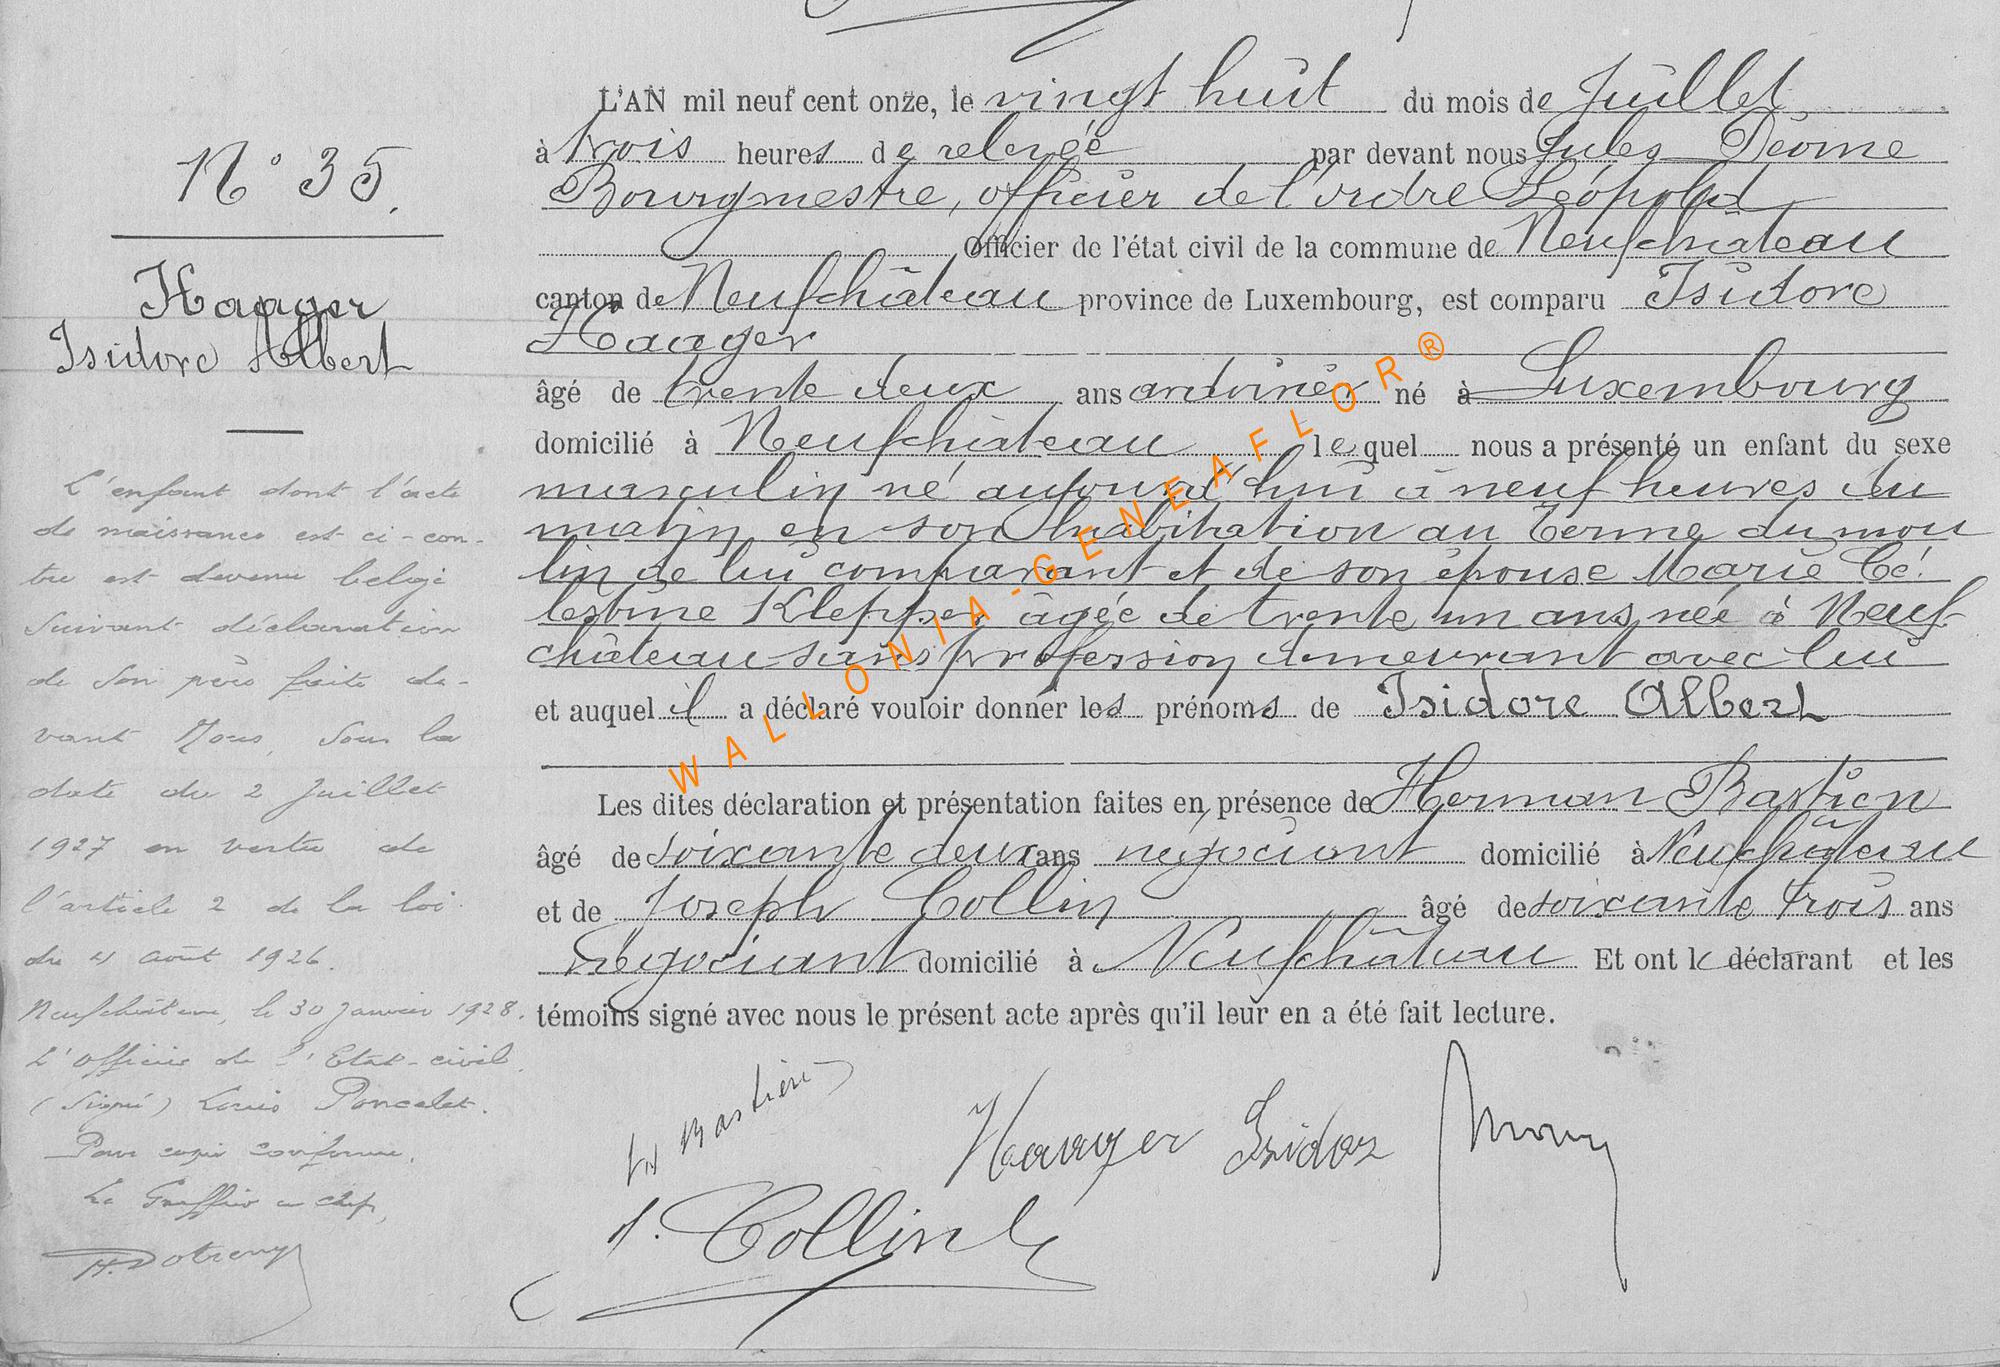 N° 35.
Haager
Isidore Albert
L'enfant dont l'acte
de naissance est ci-con-
tre est devenu belge
suivant déclaration
de son père faite de-
vant Nous, sous la
date du 2 Juillet
1927 en vertu de
l'article 2 de la loi
du 4 août 1926.
Neufchâteau, le 30 Janvier 1928.
L'Officier de l'Etat-civil
(signé) Louis Poncelet.
Pour copie conforme,
Le Greffier en chef,
L'AN mil neuf cent onze, le vingt huit du mois de Juillet
à trois heures de relevée par devant nous Jules
Bourgmestre, officier de l'ordre Léopold
Officier de l'état civil de la commune de Neufchâteau
canton de Neufchâteau province de Luxembourg, est comparu Isidore
Haager
âgé de trente deux ans ardoisier né à Luxembourg
domicilié à Neufchâteau lequel nous a présenté un enfant du sexe
masculin né aujourd'hui à neuf heures du
matin en son habitation au Terme du mou
lin de lui comparant et de son épouse Marie Cé-
lestine Klepper âgée de trente un ans, née à Neuf-
château sans profession demeurant avec lui
et auquel il a déclaré vouloir donner les prénoms de Isidore Albert
Les dites déclaration et présentation faites en présence de Herman Bastien
âgé de soixante deux ans négociant domicilié à Neufchâteau
et de Joseph Collin âgé de soixante trois ans
négociant domicilié à Neufchâteau Et ont le déclarant et les
témoins signé avec nous le présent acte après qu'il leur en a été fait lecture.
Bastien
Haager Isidor
J. Collin
WALLONIA-GENEAFLOR®